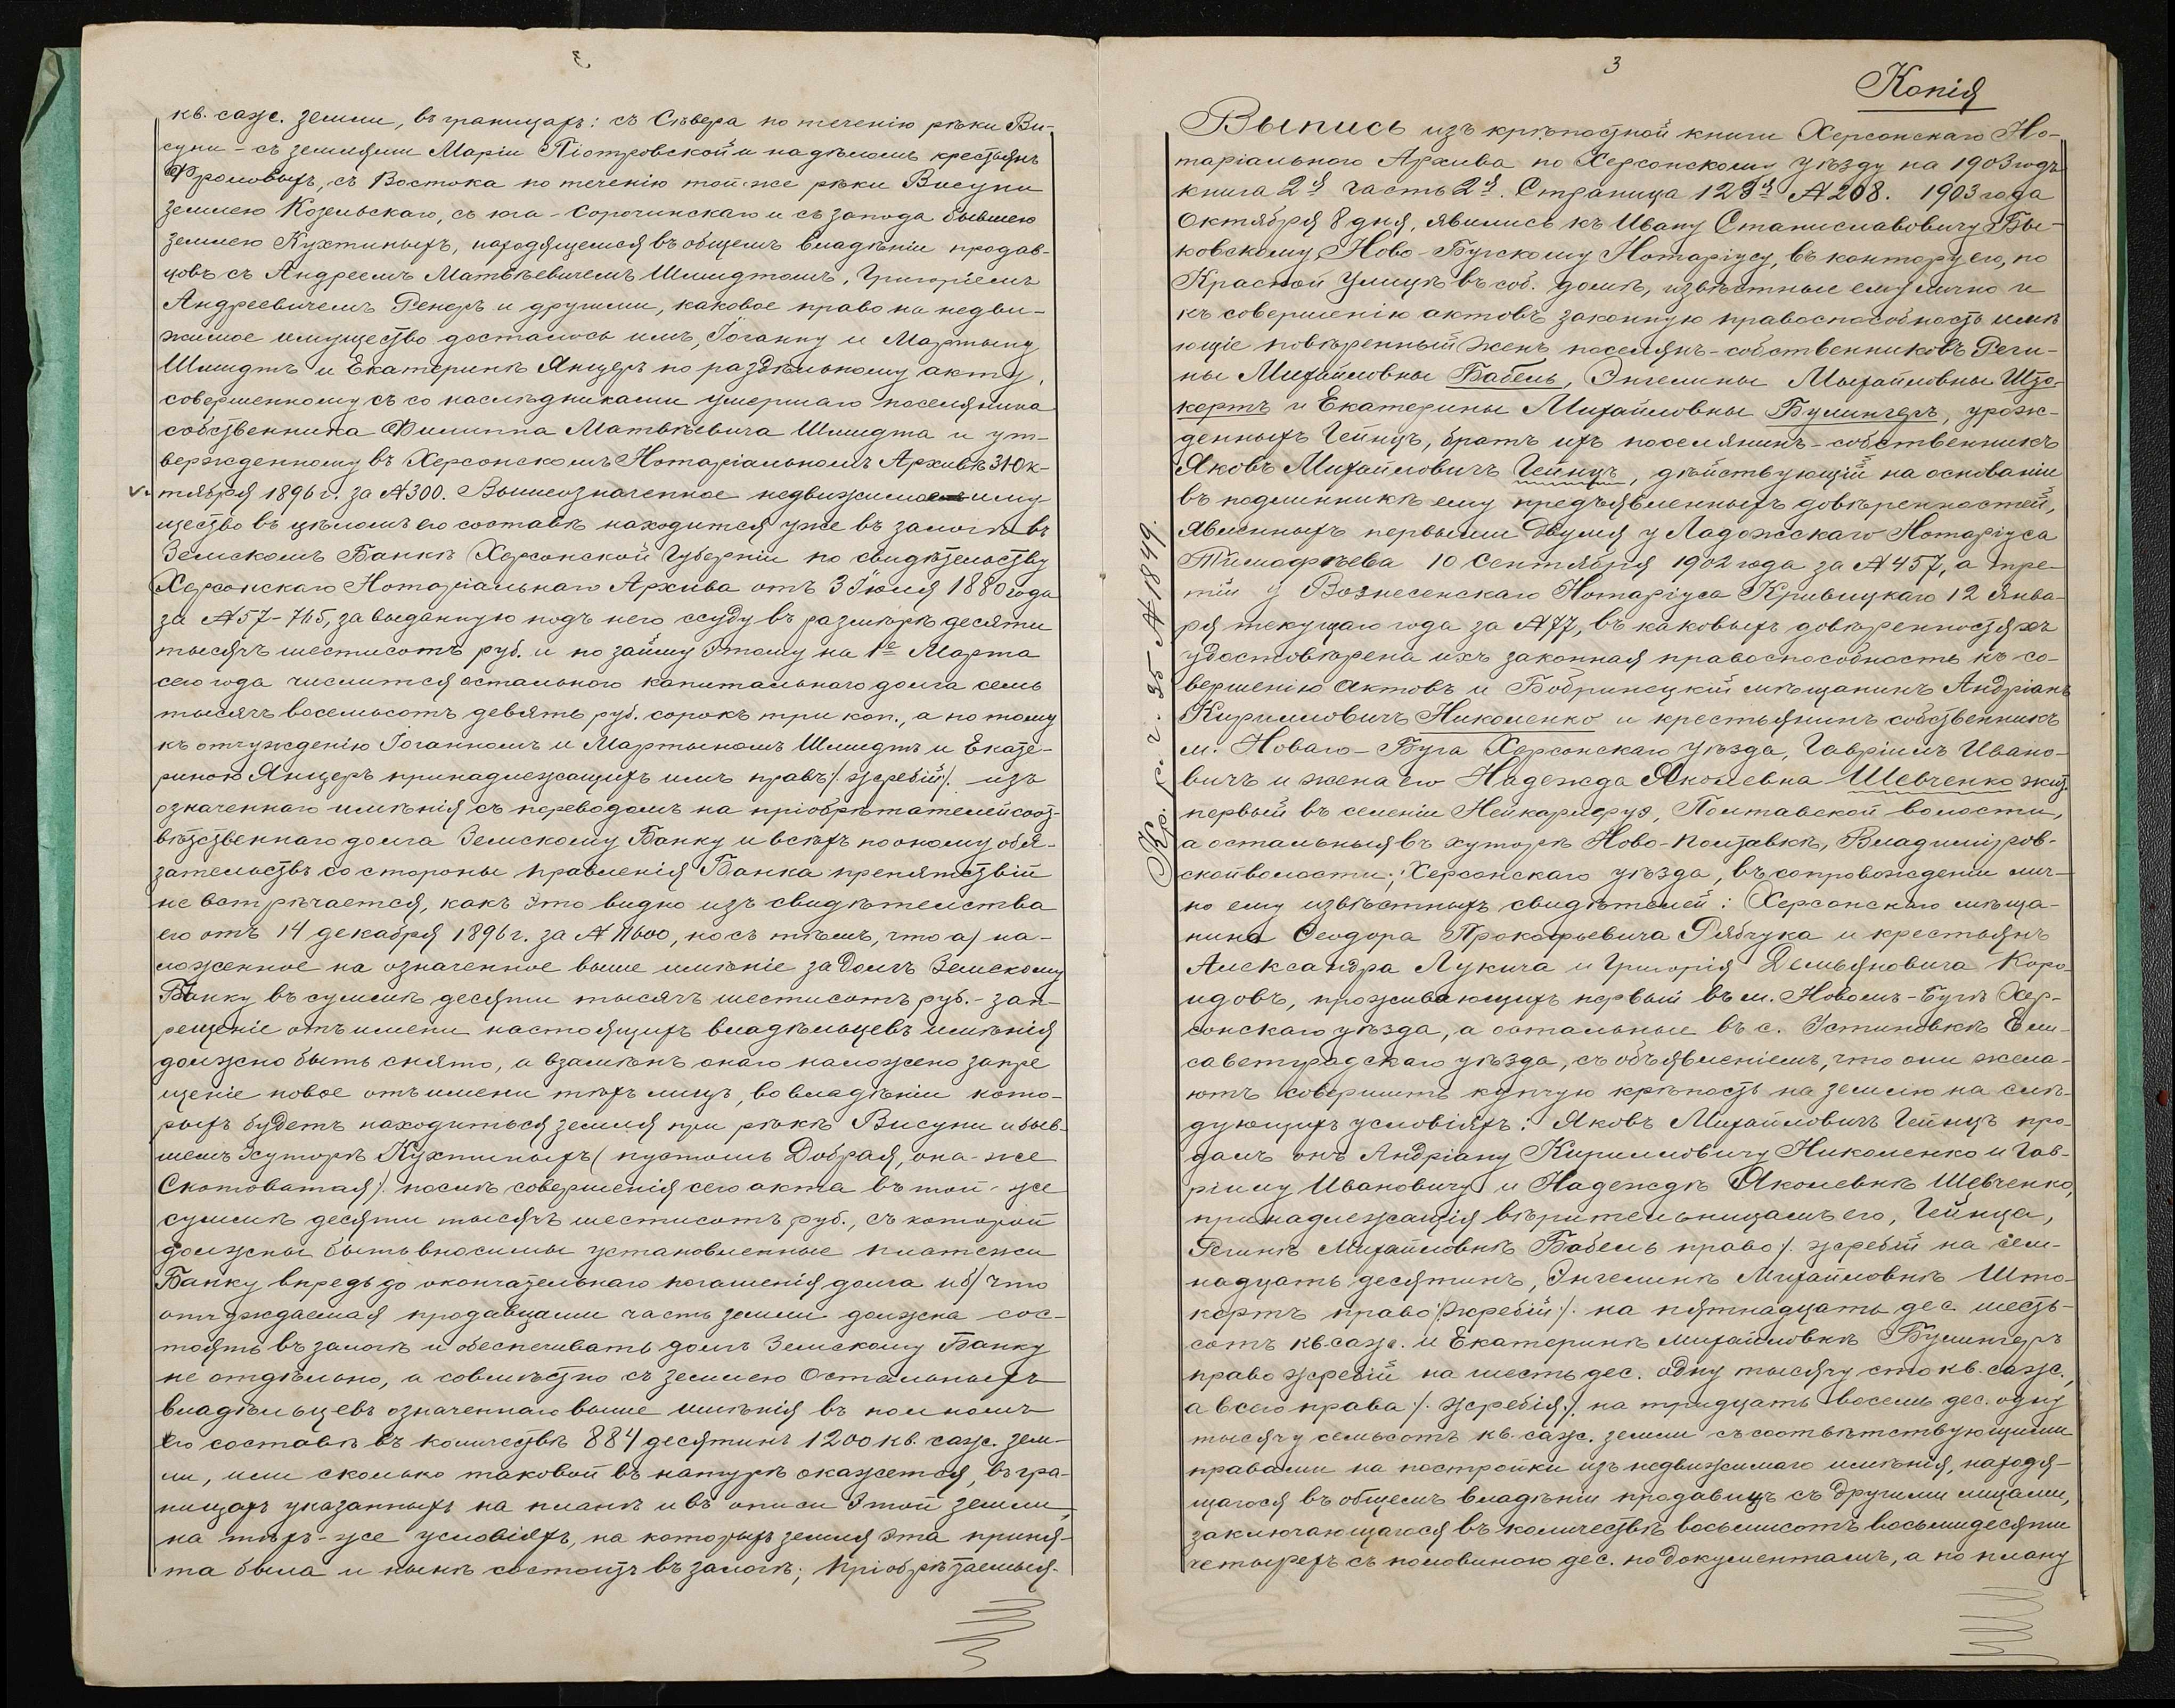 кв. саж. земли, въ границахъ: съ Сѣвера по теченію рѣки Ви-
суни - съ землями Маріи Піотровской и надѣломъ крестьянъ
Фроловыхъ, съ Востока по теченію той-же рѣки Висуни
землею Козельскаго, съ юга - Сорочинскаго и съ запада бывшею
землею Кухтиныхъ, находящемся въ общемъ владѣніи продав-
цовъ съ Андреемъ Матвѣевичемъ Шмидтомъ, Григоріемъ
Андреевичемъ Ренеръ и другими, каковое право на недви-
жимое имущество досталось имъ, Іоганну и Мартыну
Шмидтъ и Екатеринѣ Янцеръ по раздѣльному акту,
совершенному съ со наслѣдниками умершаго поселянина
собственника Филиппа Матвѣевича Шмидта и ут-
вержденному въ Херсонскомъ Нотаріальномъ Архивѣ 31 Ок-
тября 1896 г. за № 300. Вышеозначенное недвижимое иму
щество въ цѣломъ его составѣ находится уже въ залогѣ въ
Земскомъ Банкѣ Херсонской Губерніи по свидѣтельству
Херсонскаго Нотаріальнаго Архива отъ 3 Іюля 1880 года
за № 57-765, за выданную подъ него ссуду въ размѣрѣ десяти
тысячъ шестисотъ руб. и по займу этому на 1е Марта
сего года числится остальнаго капитальнаго долга семь
тысячъ восемьсотъ девять руб. сорокъ три коп., а по тому
къ отчужденію Іоганномъ и Мартыномъ Шмидтъ и Екате-
риною Янцеръ принадлежащихъ имъ правъ /. жребій /. изъ
означеннаго имѣнія съ переводомъ на пріобрѣтателей соот-
вѣтственнаго долга Земскому Банку и всѣхъ по оному обя-
зательствъ со стороны правленія Банка препятствій
не встрѣчается, какъ это видно изъ свидѣтельства
его отъ 14 декабря 1896 г. за № 11600, но съ тѣмъ, что а) на-
ложенное на означенное выше имѣніе за долгъ Земскому
Банку въ суммѣ десяти тысячъ шестисотъ руб. - зап-
рещеніе отъ имени настоящихъ владѣльцевъ имѣнія
должно быть снято, а взамѣнъ онаго наложено запре
щеніе новое отъ имени тѣхъ лицъ, во владѣніи кото-
рыхъ будетъ находиться земля при рѣкѣ Висуни и быв-
шемъ Хуторѣ Кухтиныхъ (пустошь Добрая, она-же
Скотоватая /. послѣ совершенія сего акта въ той-же
суммѣ десяти тысячъ шестисотъ руб., съ которой
должны быть вносимы установленные платежи
Банку впредь до окончательнаго погашенія долга и б) что
отчуждаемая продавцами часть земли должна сос-
тоять въ залогѣ и обеспечивать долгъ Земскому Банку
не отдѣльно, а совмѣстно съ землею Остальныхъ
владѣльцевъ означеннаго выше имѣнія въ полномъ
его составѣ въ количествѣ 884 десятинъ 1200 кв. саж. зем-
ли, или сколько таковой въ натурѣ окажется, въ гра-
ницахъ указанныхъ на планѣ и въ описи этой земли,
на тѣхъ-же условіяхъ, на которыхъ земля эта приня-
та была и нынѣ состоитъ въ залогѣ; пріобрѣтаемыя
3
Копія
Выпись изъ крѣпостной книги Херсонскаго Но-
таріальнаго Архива по Херсонскому уѣзду на 1903 годъ
книга 2я часть 2я. Страница 123я № 208. 1903 года
Октября 8 дня, явились къ Ивану Станиславовичу Бы-
ковскому, Ново-Бугскому Нотаріусу, въ контору его, по
Красной улицѣ въ соб. домѣ, извѣстные ему лично и
къ совершенію актовъ законную правоспособность имѣ
ющіе повѣренный женъ поселянъ-собственниковъ Реги-
ны Михайловны Бабель, Энгелины Михайловны Што-
кертъ и Екатерины Михайловны Булингеръ, урож-
денныхъ Гейнцъ, братъ ихъ поселянинъ-собственникъ
Яковъ Михайловичъ Гейнцъ, дѣйствующій на основаніи
въ подлинникѣ ему предъявленныхъ довѣренностей,
явленныхъ первыми двумя у Ладожскаго Нотаріуса
Тимофѣева 10 Сентября 1902 года за № 457, а тре-
тій у Вознесенскаго Нотаріуса Кривицкаго 12 Янва-
ря текущаго года за № 77, въ каковыхъ довѣренностяхъ
удостовѣрена ихъ законная правоспособность къ со-
вершенію актовъ и Бобринецкій мѣщанинъ Андріанъ
Кирилловичъ Николенко и крестьянинъ собственникъ
м. Новаго-Буга Херсонскаго уѣзда, Гавріилъ Ивано-
вичъ и жена его Надежда Яковлевна Шевченко жит.
первый въ селеніи Нейкарлсруэ, Полтавской волости,
а остальныя въ хуторѣ Ново-Полтавкѣ, Владимиров-
ской волости, Херсонскаго уѣзда, въ сопровожденіи лич-
но ему извѣстныхъ свидѣтелей: Херсонскаго мѣща-
нина Ѳеодора Прокофьевича Рябчука и крестьянъ
Александра Лукича и Григорія Демьяновича Коро
идовъ, проживающихъ первый въ м. Новомъ-Бугѣ Хер-
сонскаго уѣзда, а остальные въ с. Устиновкѣ Ели-
саветградскаго уѣзда, съ объявленіемъ, что они жела-
ютъ совершить купчую крѣпость на землю на слѣ-
дующихъ условіяхъ: Яковъ Михайловичъ Гейнцъ про-
далъ онъ Андріану Кирилловичу Николенко и Гав-
ріилу Ивановичу и Надеждѣ Яковлевнѣ Шевченко,
принадлежащія вѣрительницамъ его, Гейнца,
Регинѣ Михайловнѣ Бабель право /. жребій на сем-
надцать десятинъ, Энгелинѣ Михайловнѣ Што-
кертъ право /.жребій/. на пятнадцать дес. шесть-
сотъ кв. саж. и Екатеринѣ Михайловнѣ Булингеръ
право жребій на шесть дес. одну тысячу сто кв. саж.,
а всего права /. жребія /. на тридцать восемь дес. одну
тысячу семьсотъ кв. саж. земли съ соотвѣтствующими
правами на постройки изъ недвижимаго имѣнія, находя-
щагося въ общемъ владѣніи продавицъ съ другими лицами,
заключающагося въ количествѣ восьмисотъ восьмидесяти
четырехъ съ половиною дес. по документамъ, а по плану
Кр. р. с. г. 35 № 1849.